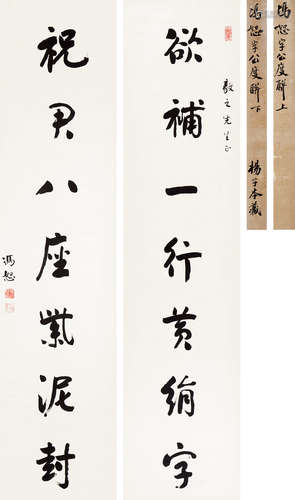 欲補一行黄絹字
毅之先生正
祝君八座紫泥封
馮恕
馮恕字公度聯上
馮恕字公度聯下
楊字本藏